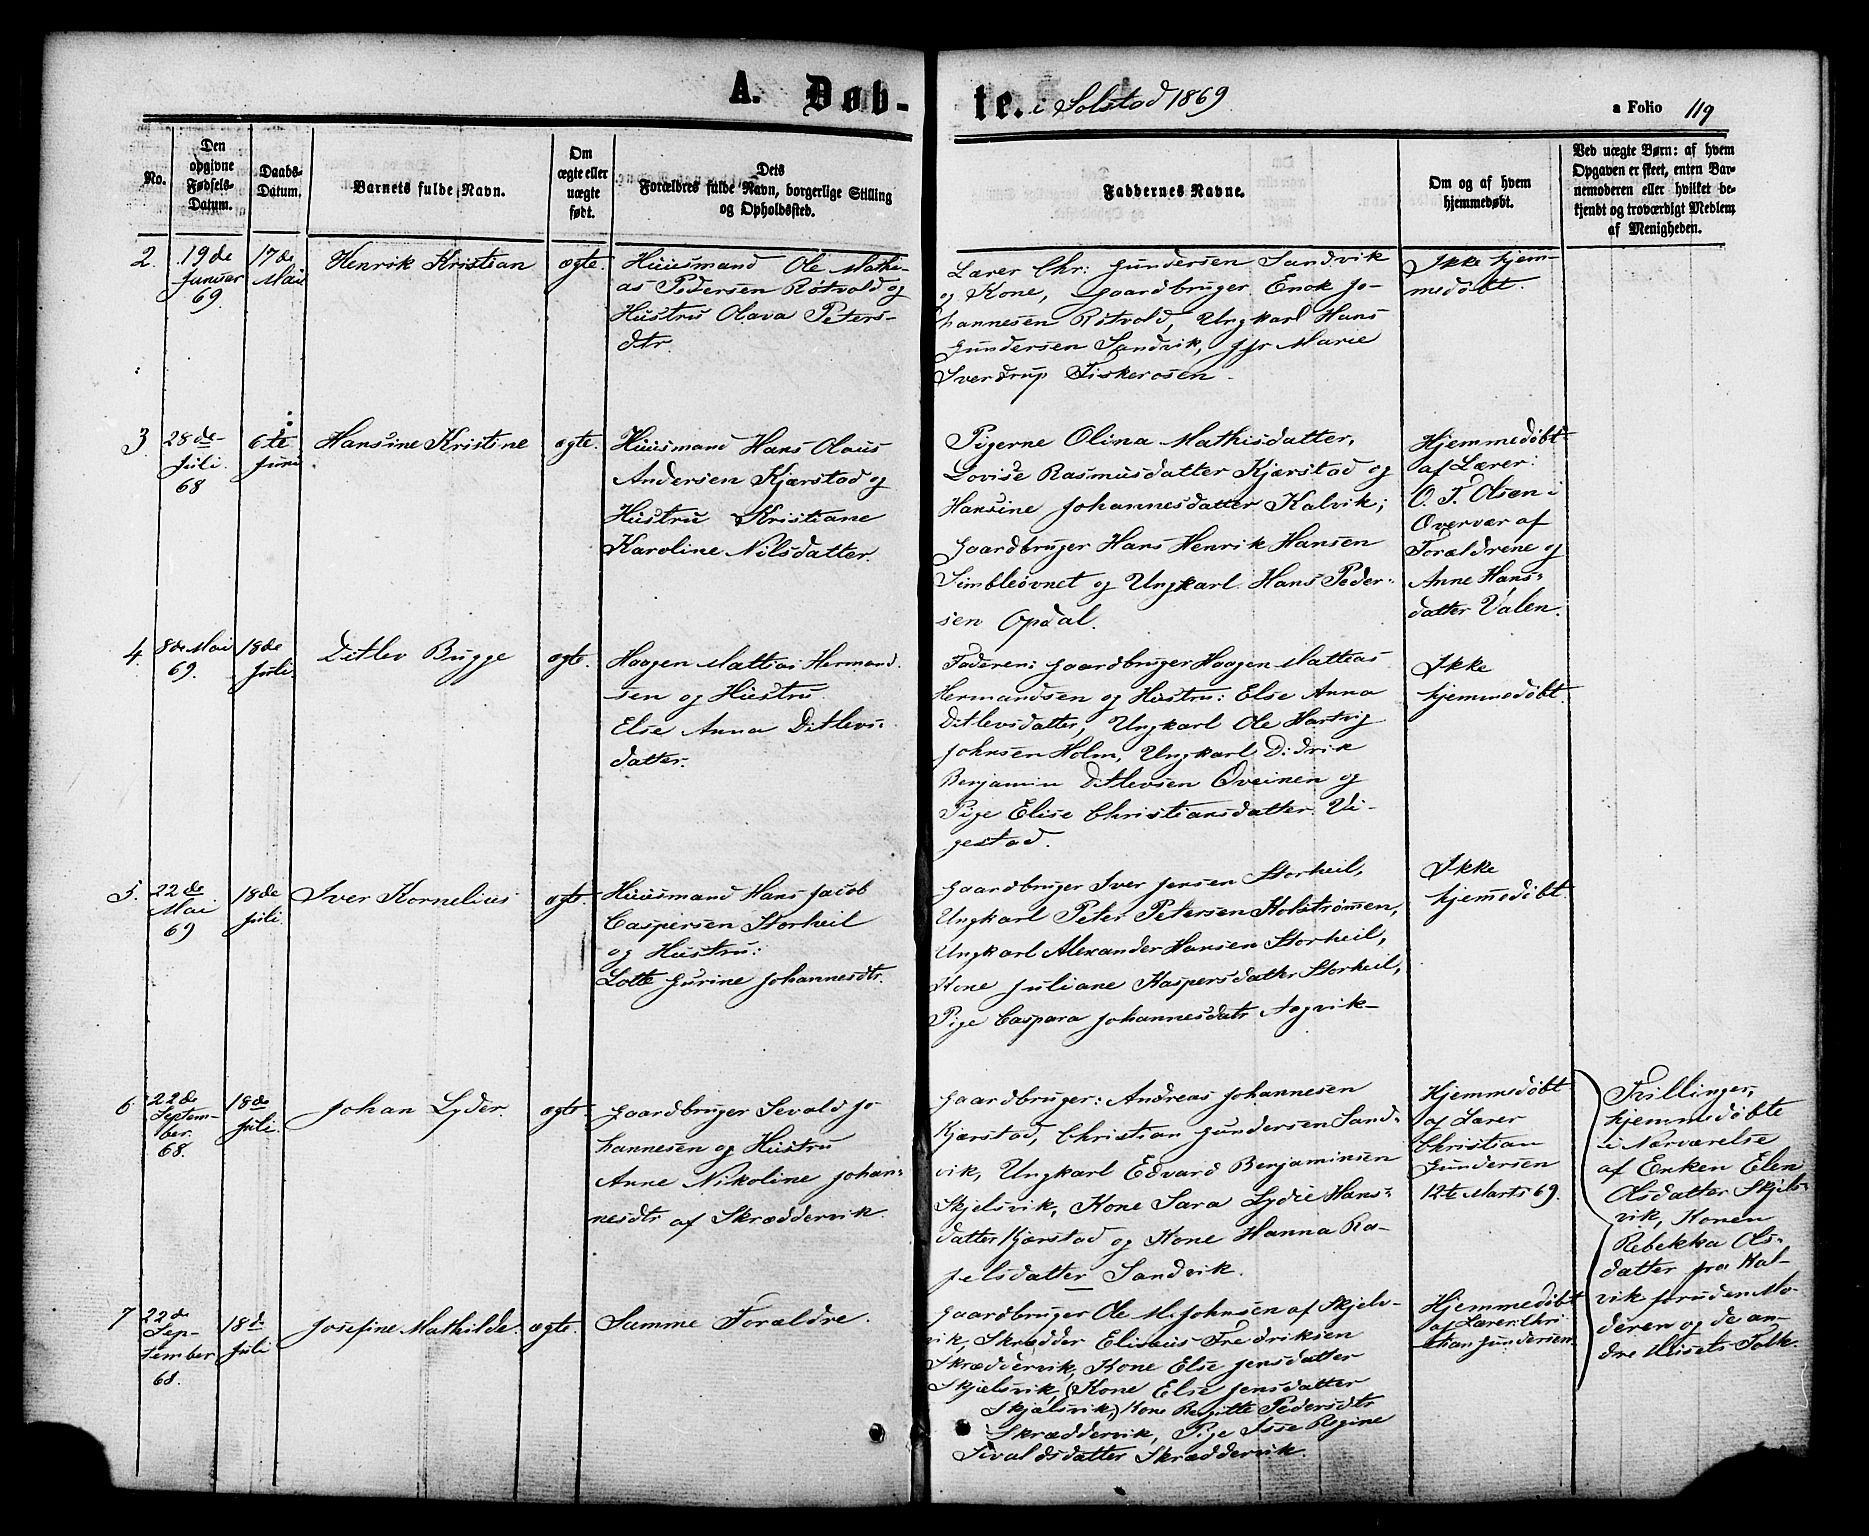 A. Døb-
te. i Solstad 1869
a Folio 119
No.
Den
opgivne
Fødsels-
Datum.
Daabs-
Datum.
Barnets fulde Navn.
Om
ægte eller
uægte
født.
Dets
Forældres fulde Navn, borgerlige Stilling
og Opholdssted.
Faddernes Navne.
Om og af hvem
hjemmedøbt.
Ved uægte Børn: af hvem
Opgaven er skeet, enten Bar-
nemoderen eller hvilket be-
kjendt og troværdigt Medlem
af Menigheden.
2.
19de
Januar
69
17de
Mai
Henrik Kristian
ægte.
Huusmand Ole Mathi-
as Pedersen Røtvold og
Hustru Olava Peters-
dtr.
Lærer Chr: Gundersen Sandvik
og Kone, Gaardbruger Enok Jo-
hannesen Røtvold, Ungkarl Hans
Gundersen Sandvik, Jfr Marie
Sverdrup Fiskerosen.
Ikke hjem-
medøbt.
3.
28de
Juli.
68
6te
Juni
Hansine Kristine
ægte.
Huusmand Hans Olaus
Andersen Kjærstad og
Hustru Kristiane
Karoline Nilsdatter.
Pigerne Olina Mathisdatter,
Lovise Rasmusdatter Kjærstad og
Hansine Johannesdatter Kalvik;
Gaardbruger Hans Henrik Hansen
Simbleøvnet og Ungkarl Hans Peder-
sen Opdal.
Hjemmedøbt
af Lærer:
O. T. Olsen i
Overvær af
Forældrene og
Anne Hans-
datter Valen.
4.
8de Mai
69.
18de
Juli.
Ditlev Bugge
ægte.
Haagen Mattias Hermand-
sen og Hustru
Else Anna Ditlevs-
datter.
Faderen: Gaardbruger Haagen Matteas
Hermandsen og Hustru: Else Anna
Ditlevsdatter, Ungkarl Ole Hartvig
Johnsen Holm, Ungkarl Didrik
Benjamin Ditlevsen Øveinen og
Pige Elise Christiansdatter Vi-
gestad.
Ikke
hjemmedøbt.
5.
22de
Mai
69
18de
Juli.
Iver Kornelius
ægte.
Huusmand Hans Jacob
Caspersen Storheil
og Hustru:
Lotte Gurine Johannesdtr.
Gaardbruger Iver Jensen Storheil,
Ungkarl Peter Petersen Holstrømen,
Ungkarl Alexander Hansen Storheil,
Kone Juliane Kaspersdatter Storheil,
Pige Caspara Johannesdatr Aagvik-
Ikke
hjemmedøbt.
6
22de
Septem-
ber.
68.
18de
Juli.
Johan Lyder.
ægte.
Gaardbruger Sevald Jo-
hannesen og Hustru
Anne Nikoline Johan-
nesdtr af Skræddervik.
Gaardbruger: Andreas Johannesen
Kjærstad, Christian Gundersen Sand-
vik, Ungkarl Edvard Benjaminsen
Skjelsvik, Kone Sara Lydie Hans-
datter Kjærstad og Kone Hanna Ra-
felsdatter Sandvik.
Hjemmedøbt
af Lærer
Christian
Gundersen
12te Marts 69.
Tvillinger,
hjemmedøbte
i Nærværelse
af Enken Elen
Olsdatter Skjels-
vik, Konen
Rebekka Ols-
datter fra Kal-
vik foruden Mo-
deren og de an-
dre Husets Folk.
7
22de
Sep-
tember
68.
18de
Juli
Josefine Mathilde.
ægte.
Samme Forældre.
Gaardbruger Ole M. Johnsen af Skjels-
vik, Skrædder Eliseus Fredriksen
Skræddervik, Kone Else Jensdatter
Skjælsvik, (Kone Else Jensdatter
Skjælsvik,) Kone Birgitte Pedersdtr
Skræddervik, Pige Isse Regine
Sivaldsdatter Skræddervik.
Hjemmedøbt
af Lærer: Chri
stian Gundersen